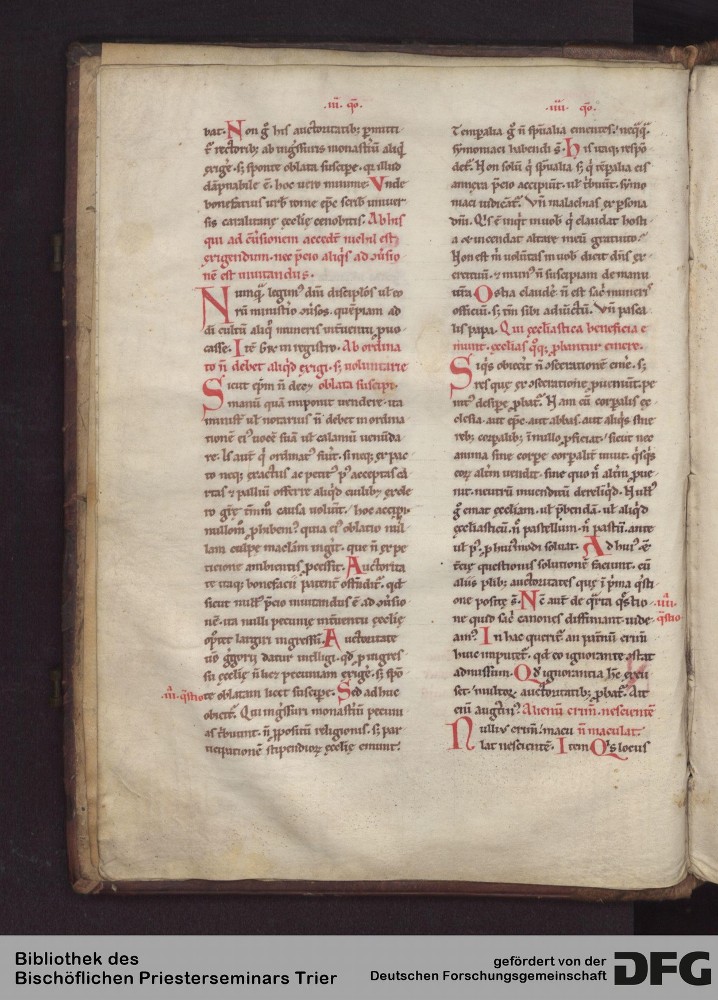 .iii. qo.
bat. Non g his auctoritatib; pmitti
t rectorib; ab ingssuris monastiu aliqd
exige. s; sponte oblata suscipe. qr illud
dapnabile e. hoc uero minime. Vnde
bonefacius urb rome epc scrib uniuer
sis
ecclie cenobitis. Ab his
qui ad cuersionem accedt nichil est
exigendum. nec pcio aliqs ad cuersio
ne est inuitandus.
Numq legim dni discipulos ul eo
ru ministio cuersos. quepiam ad
di cultu aliq muneris inteuentu puo
casse. Ite Gre in registro. Ab ordina
to n debet aliqd exigi. s; uoluntarie
Sicut epm n decet oblata suscipi.
manu qua imponit uendere. ita
minist ul notarius n debet in ordina
tione ei uoce sua ul calamu uenuda
re. Is aut q ordinat fuit. si neq; ex pac
to neq; exactus ac petit p acceptas ca
rtas & palliu offerre aliqd cuilib; ex cle
ro gre tmm causa uoluit. hoc accipi
nullom phibem. quia ei oblatio nul
lam culpe maclam ingit. que n ex pe
ticione ambientis pcessit. Auctorita
te itaq; bonefacii patent ostdit. qd
sicut null pcio inuitandus e ad cuersio
ne. ita nulli pecunie inteuentu ecclie
optet largiri ingressu. Auctoritate
uo ggorii datur intelligi. qd p ingres
su ecclie n licz pecuniam exige. s; spo
te oblatam licet suscipe. Sed adhuc
obicit. Qui ingssuri monastiu pecuni
as tbuunt. n ppositu religionis. s; par
ticipatione stipendior ecclie emunt.
.iii. qstio
.iiii. qo.
Temporalia g n spualia ementes. neqq
symoniaci habendi s. His itaq; respo
det. Non solu q spualia s; q teporalia eis
annexa pcio accipiunt. ul tbuunt. symo
niaci iudicat. Vn malachias ex persona
dni. Qs e inqt in uob q claudat hosti
a & incendat altare meu gratuito.
Non est m uoluntas in uob dicit dns ex
ercituu. & mun n suscipiam de manu
ura. Ostia claude n est sac muneris
officiu. s; tm sibi adiuctu. Vn pasca
lis papa. Qui ecclesiastica beneficia e
munt. ecclias qq; pbantur emere.
Siqs obiecit n csecratione eme. s;
res que ex csecratione pueniut. pe
nit desipe pbat. Nam cu corpalis ec
clesia. aut epc. aut abbas. aut aliqs siue
reb; corpalib; in nullo pficiat. sicut nec
anima sine corpe corpalit uiuit. qsqs
eor altm uendit. sine quo n altm pue
nit. neutru inuenditu dereliqd. Null
g emat eccliam. ul pbendam. ul aliqd
ecclesiasticu. n pastellum. n pastu. ante
ul p. p huiusmodi soluat. Ad hui &
teie questionis solutione faciunt. cu
aliis plib; auctoritates que i pma qsti
one posite s. Ne aut de qrta qstio
ne quid sac canones diffiniant. uide
am. In hac querit an paternu crim
huic imputet. qd eo ignorante pstat
admissum. Qd ignorantia hec excu
set. multor auctoritatib; pbat. Ait
eni augtin. Alienu crim. nesciente
Nulliu crim maculi n maculat.
lat nesciente. Item Qs locus
.iiii.
qstio
Bibliothek des
Bischöflichen Priesterseminars Trier
gefördert von der
Deutschen Forschungsgemeinschaft
DFG